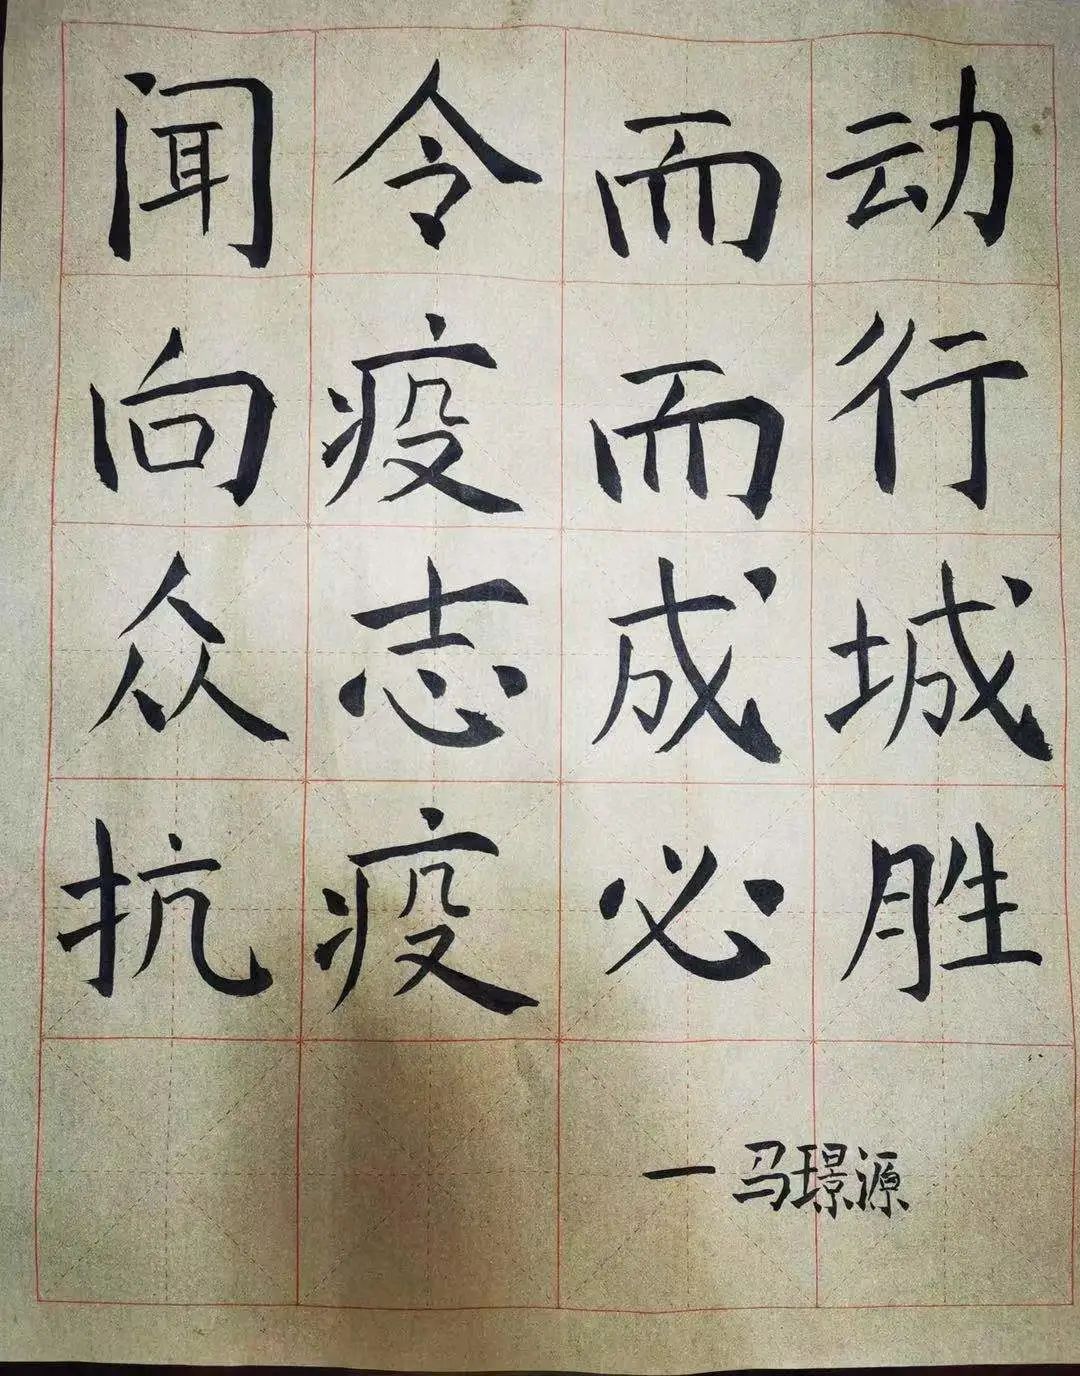 闻令而动
向疫而行
众志成城
抗疫必胜
一马璟源